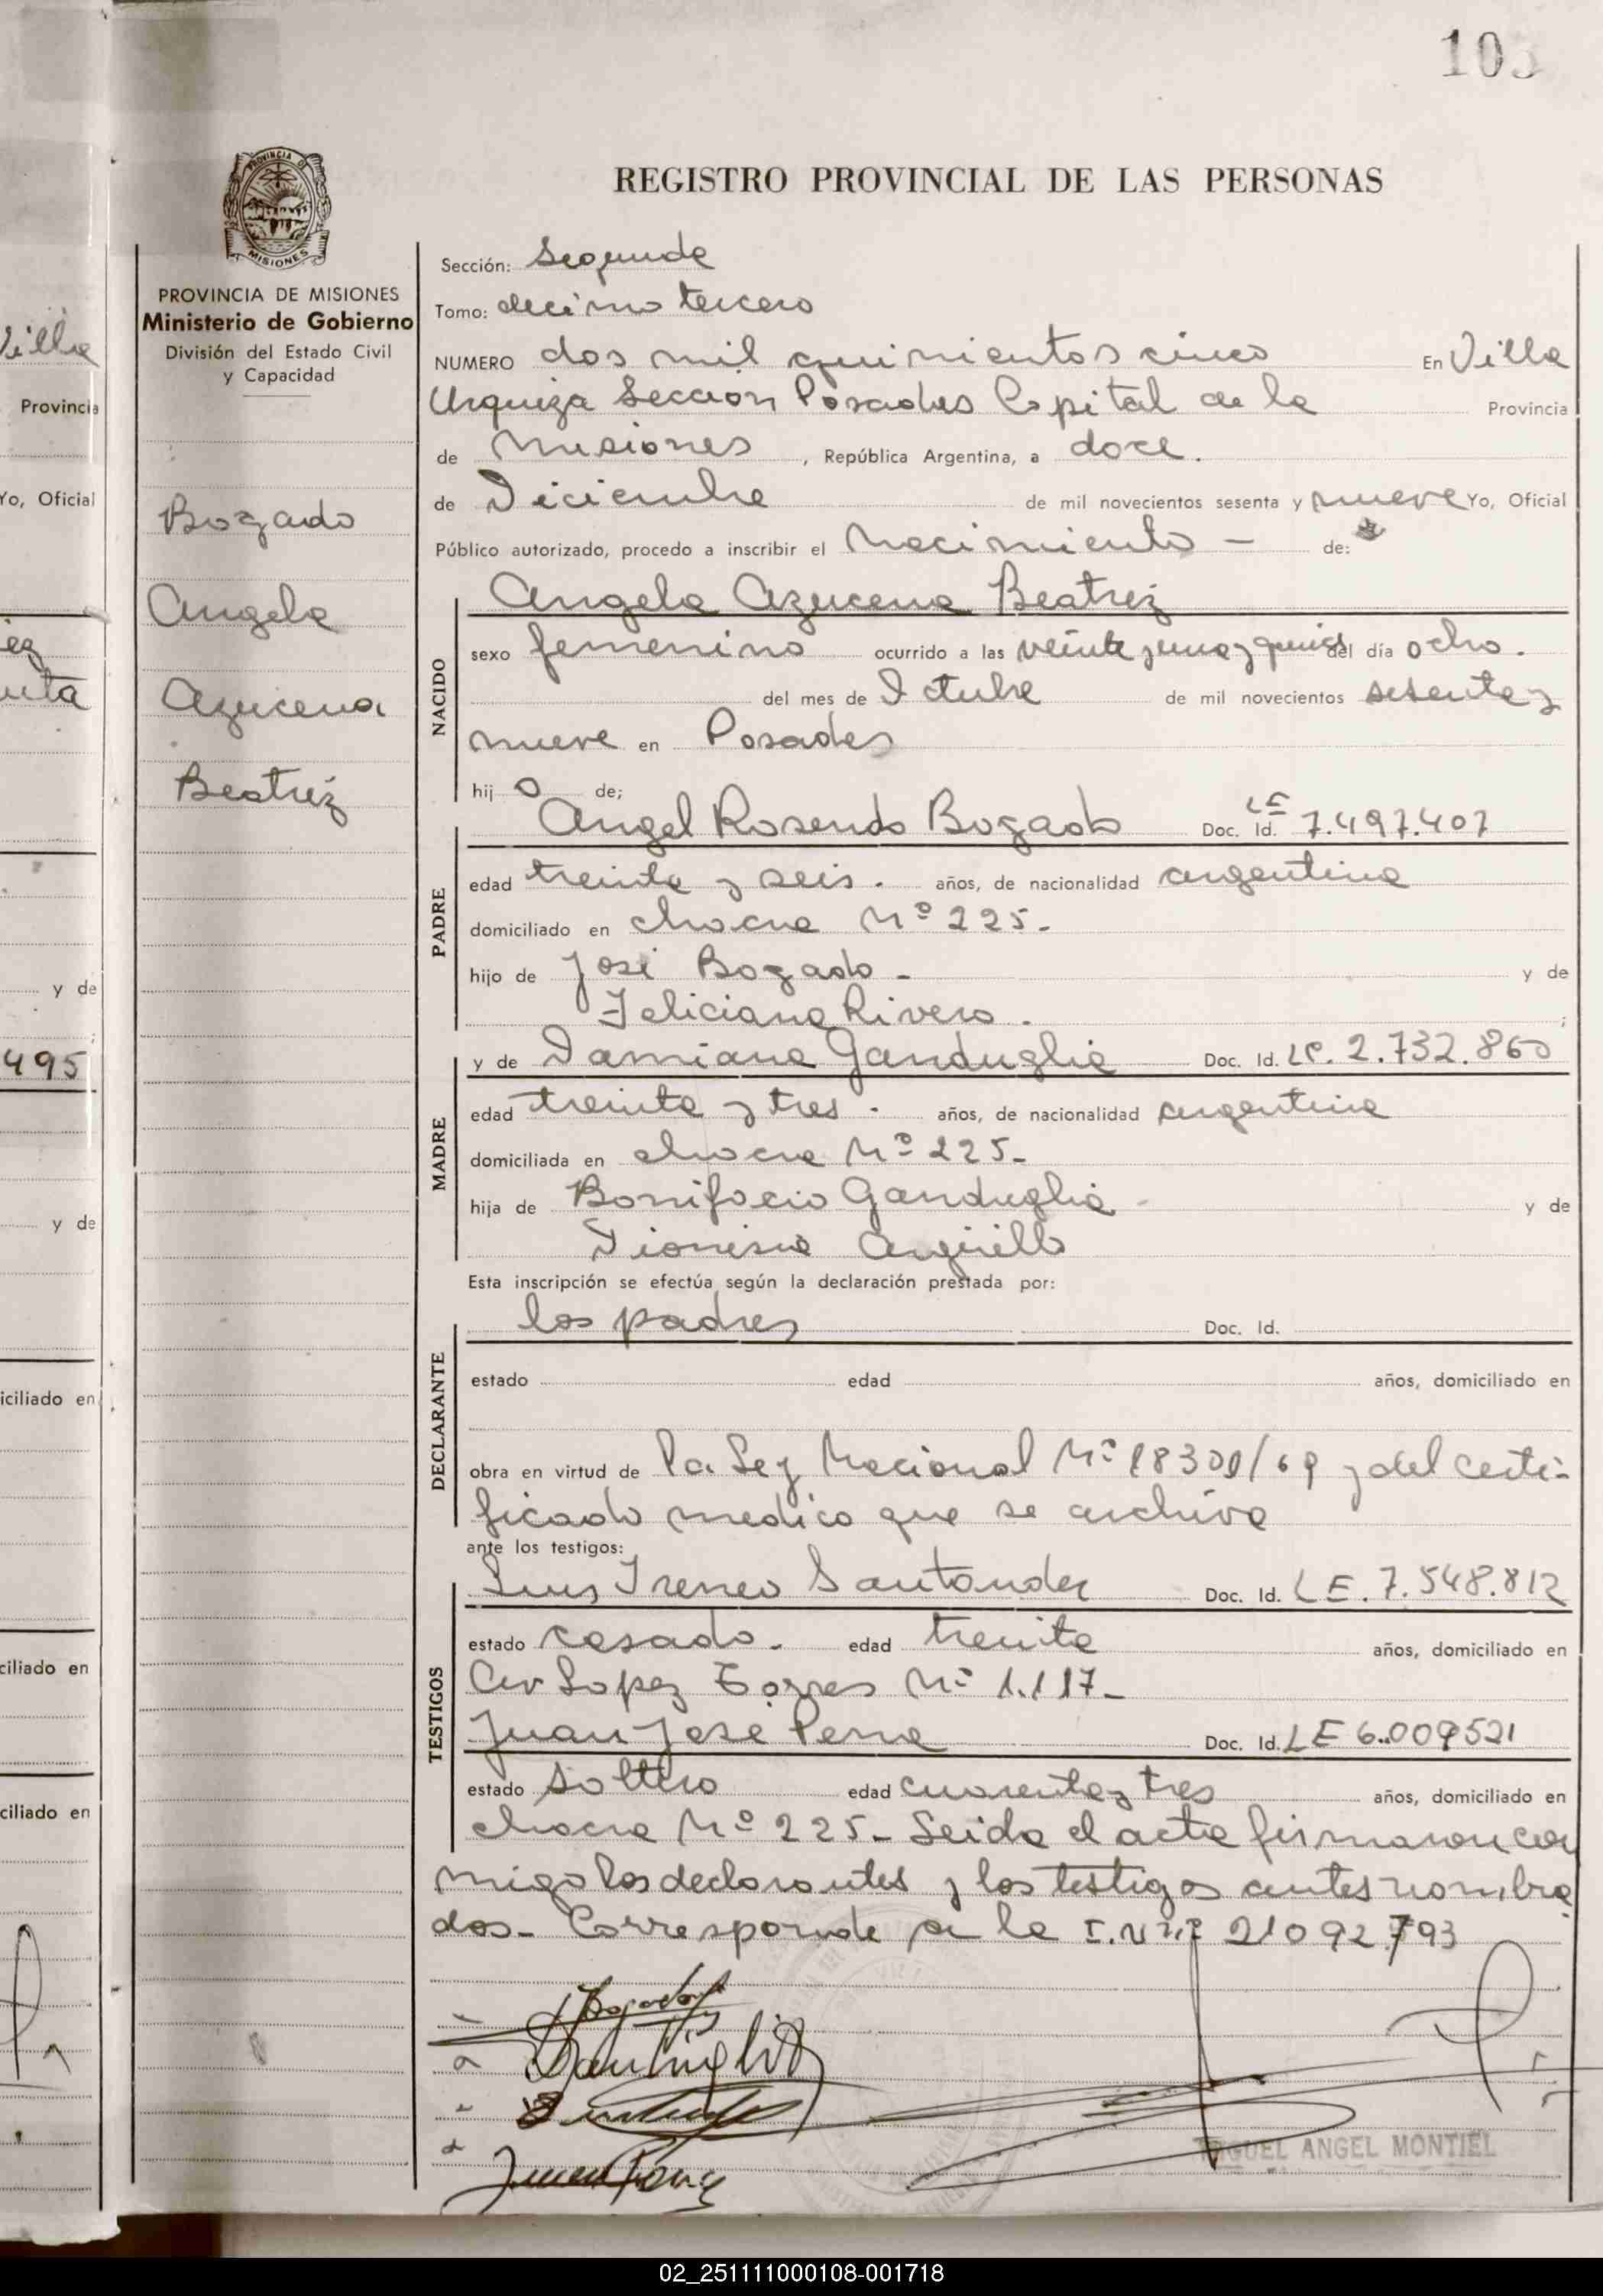 103
REGISTRO PROVINCIAL DE LAS PERSONAS
PROVINCIA DE MISIONES
Ministerio de Gobierno
División del Estado Civil
y Capacidad
Bozado
Angela
Azucena
Beatriz
Sección: Segunda
Tomo: decimo tercero
NUMERO dos mil quinientos cinco En Villa
Urquiza Seccion Posadas Capital de la Provincia
de Misiones, República Argentina, a doce.
de Diciembre de mil novecientos sesenta y nueve Yo, Oficial
Público autorizado, procedo a inscribir el Nacimiento - de:
Angela Azucena Beatriz
NACIDO
sexo femenino ocurrido a las veinte y una y quince del día ocho.
del mes de Octubre de mil novecientos sesenta y
nueve en Posadas
hij a de;
PADRE
Angel Rosendo Bozado Doc. Id. LE 7.497.407
edad treinta y seis. años, de nacionalidad argentina
domiciliado en chacra Nº 225-
hijo de José Bozado - y de
Feliciana Rivero.;
MADRE
y de Damiana Ganduglia Doc. Id. LC. 2.732.860
edad treinta y tres. años, de nacionalidad argentina
domiciliada en chacra Nº 225-
hija de Bonifacio Ganduglia - y de
Dionisia Arguello
Esta inscripción se efectúa según la declaración prestada por:
DECLARANTE
los padres Doc. Id.
estado edad años, domiciliado en
obra en virtud de la Ley Nacional Nº 18300/69 y del certi-
ficado medico que se archiva
ante los testigos:
TESTIGOS
Luis Ireneo Santander Doc. Id. LE. 7.548.812
estado casado. edad treinta años, domiciliado en
Av Lopez Torres Nº 1.117-
Juan José Pena Doc. Id. LE 6.009521
estado soltero edad cuarenta y tres años, domiciliado en
chacra Nº 225- Leida el acta firmaron con
migo los declarantes y los testigos antes nombra
dos- Corresponde a la I.Nº 21092793
Bogado
Ganduglia
Juan Pena
MIGUEL ANGEL MONTIEL
02_251111000108-001718